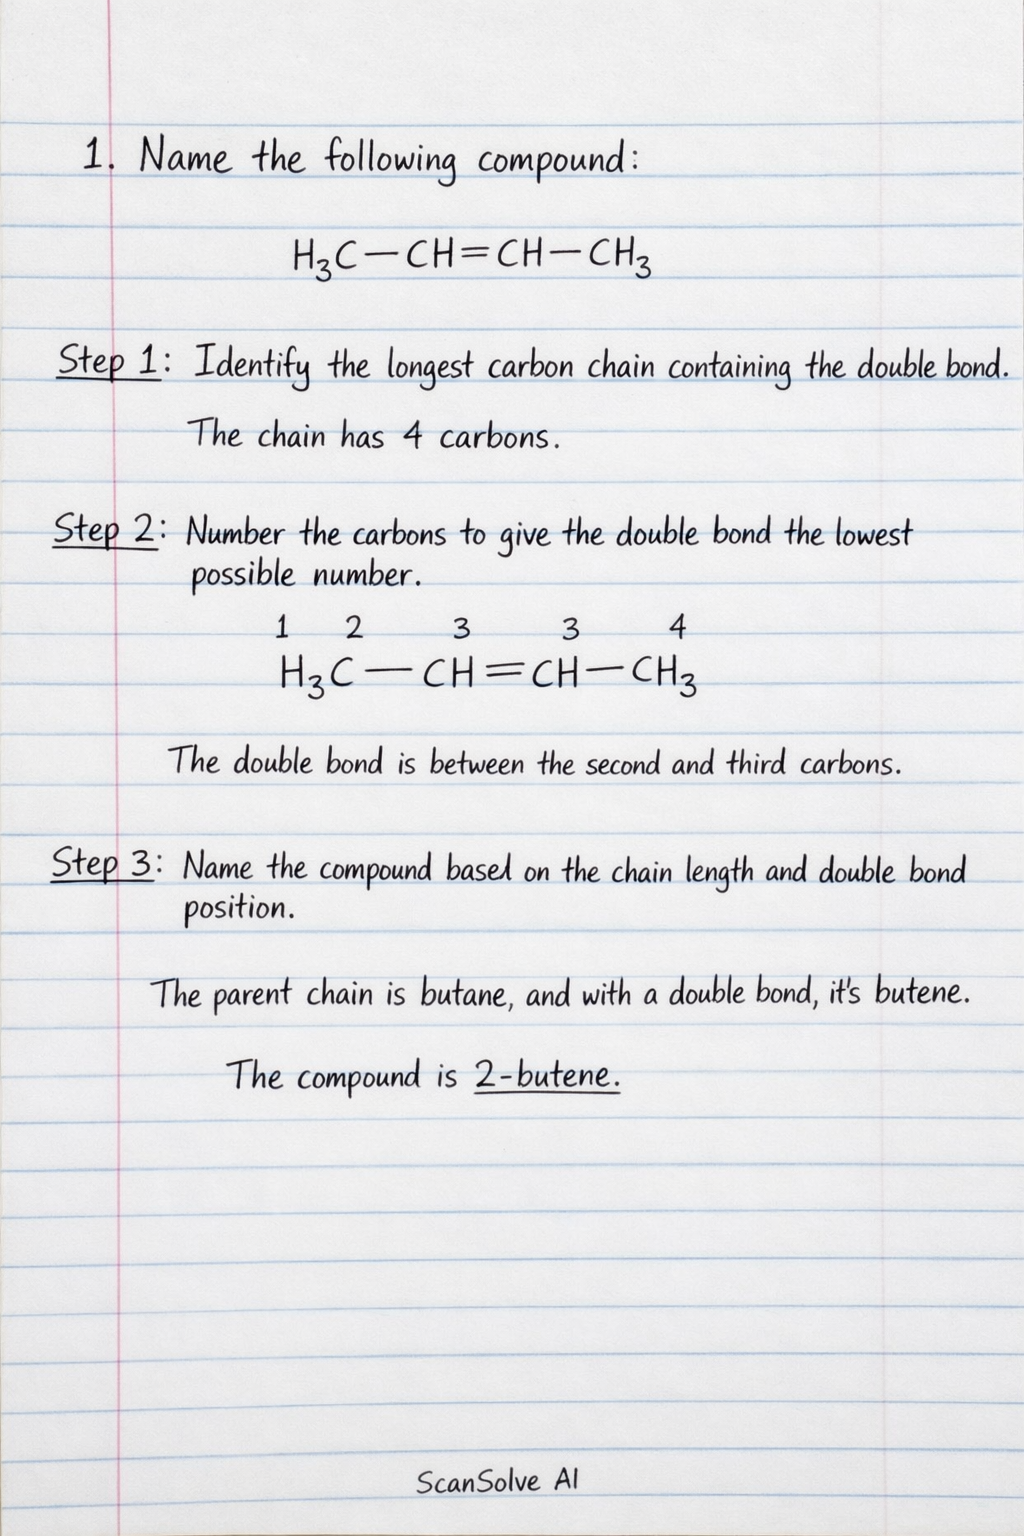 1. Name the following compound:
H₃C—CH=CH—CH₃
Step 1: Identify the longest carbon chain containing the double bond.
The chain has 4 carbons.
Step 2: Number the carbons to give the double bond the lowest
possible number.
1 2 3 3 4
H₃C—CH=CH—CH₃
The double bond is between the second and third carbons.
Step 3: Name the compound based on the chain length and double bond
position.
The parent chain is butane, and with a double bond, it's butene.
The compound is 2-butene.
ScanSolve AI